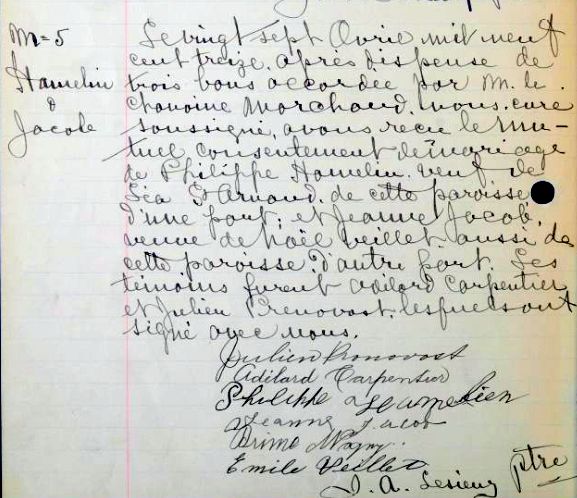 M=5
Hamelin
&
Jacob
Le vingt sept Avril mil neuf
cent treize, après dispense de
trois bans accordée par M. le
chanoine Marchand, nous, curé
soussigné, avons reçu le mu-
tuel consentement de mariage
de Philippe Hamelin veuf de
Léa St Arnaud, de cette paroisse
d'une part; et Jeanne Jacob,
veuve de Noël Veillet, aussi de
cette paroisse d'autre part. Les
témoins furent Adilard Carpentier
et Julien Pronovost, lesquels ont
signé avec nous.
Julien Pronovost
Adilard Carpentier
Philippe Hamelien
Jeanne Jacob
Emile Veillet
J. A. Lesieur ptre